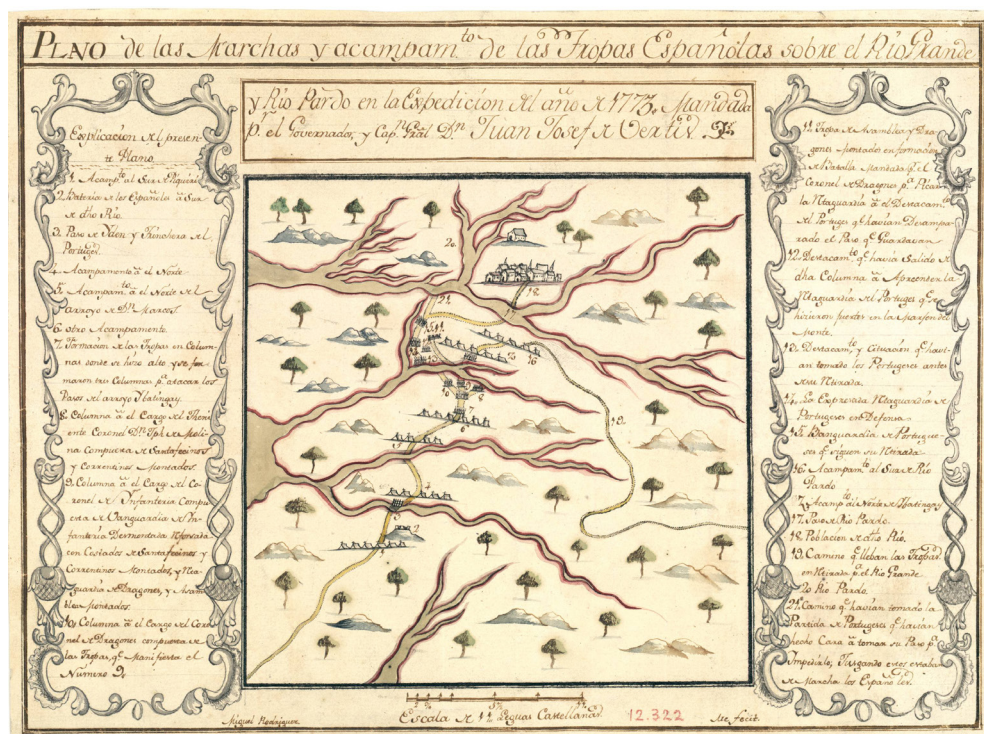 PLNO de las Marchas y acampam.to de las Tropas Españolas sobre el Rio Grande
y Rio Pardo en la Expedicion del año de 1773. Mandada
p.r el Governador, y Cap.n Gral D.n Juan Josef de Vertiz.
Explicacion del presen-
te Plano
1. Acamp.to al Sur de Piquiri
2. Bateria de los Españoles â Sur
de dho Rio.
3. Paso de Ydem y Trinchera del
Portugues.
4. Acampamento â el Norte
5. Acampam.to â el Norte del
arroyo de D.n Marcos.
6. otro Acampamento.
7. Formacion de las Tropas en Colum-
nas donde se hizo alto y se for-
maron tres Columnas p.a atacar los
Pasos del arroyo
8. Columna â el Cargo del Theni-
ente Coronel D.n Jph de Moli-
na Compuesta de Santafecinos
y Correntinos Montados.
9. Columna â el Cargo del Co-
ronel de Infanteria Compu-
esta de Vanguardia de Yn-
fanteria Desmontada
con Costados de Santafecinos y
Correntinos Montados, y Reta-
guardia de Dragones, y Asam-
blea Montados.
10. Columna â el Cargo del Coro-
nel de Dragones compuesta de
las Tropas, q.e Manifiesta el
Numero 9.
11. Tropa de Asamblea y Dra-
gones Montados en formacion
de Batalla Mandada p.r el
Coronel de Dragones p.a Picar
la Retaguardia â el Destacam.to
del Portugues q.e havian Desampa-
rado el Paso q.e Guardavan
12. Destacam.to q.e havia Salido de
dha Columna â
Retaguardia del Portugues q.e se
hicieron fuertes en la
Monte.
13. Destacam.to y Cituacion q.e havi-
an tomado los Portugueses antes
de su Retirada.
14. La Expresada Retaguardia de
Portugueses en Defensa
15. Banguardia de Portugue-
ses q.e siguen su Retirada
16. Acampam.to al Sur de Rio
Pardo
Acamp.to al Norte de
17. Paso de Rio Pardo.
18. Poblacion de dho Rio.
19. Camino q.e lleban las Tropas
en Retirada p.a el Rio Grande
20. Rio Pardo.
21. Camino q.e havian tomado la
Partida de Portugueses q.e havian
hecho Cara â tomar su Paso p.a
Impedirlo; Juzgando estos estaban
de Marcha los Españoles.
20
21
18
17
16
13
19
10
9
8
7
6
2
Miguel Rodriguez
Escala de 12 Leguas Castellanas
12.322
Me fecit.